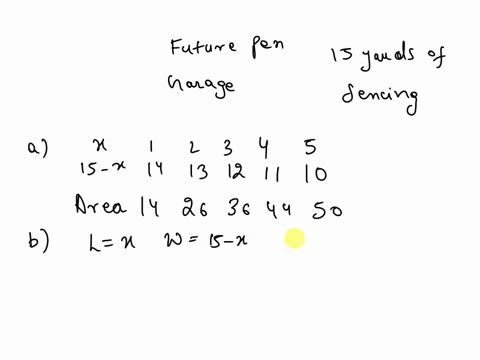 Future pen 15 yards of
Garage fencing
a) x 1 2 3 4 5
15-x 14 13 12 11 10
Area 14 26 36 44 50
b) L=x W=15-x